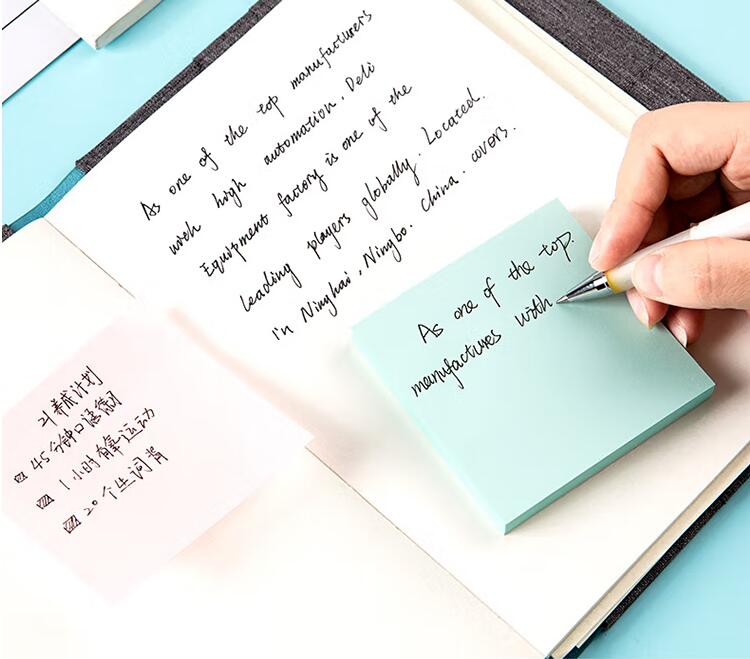 As one of the top manufacturers
with high automation, Deli
Equipment factory is one of the
leading players globally. Located.
in Ninghai, Ningbo. China. covers.
As one of the top.
manufactures with
21养成计划
45分钟口语练习
1小时有氧运动
20个生词背